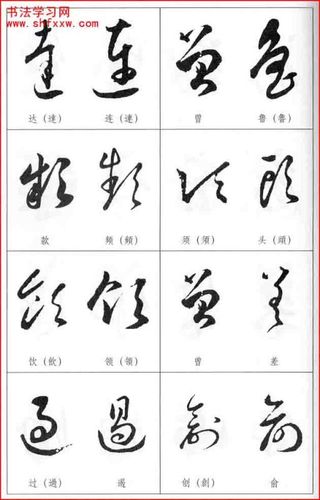 书法学习网
www.shfxxw.com
达（達） 连（連） 曾 鲁（魯）
款 频（頻） 须（須） 头（頭）
饮（飲） 领（領） 曾 差
过（過） 遏 创（創） 俞